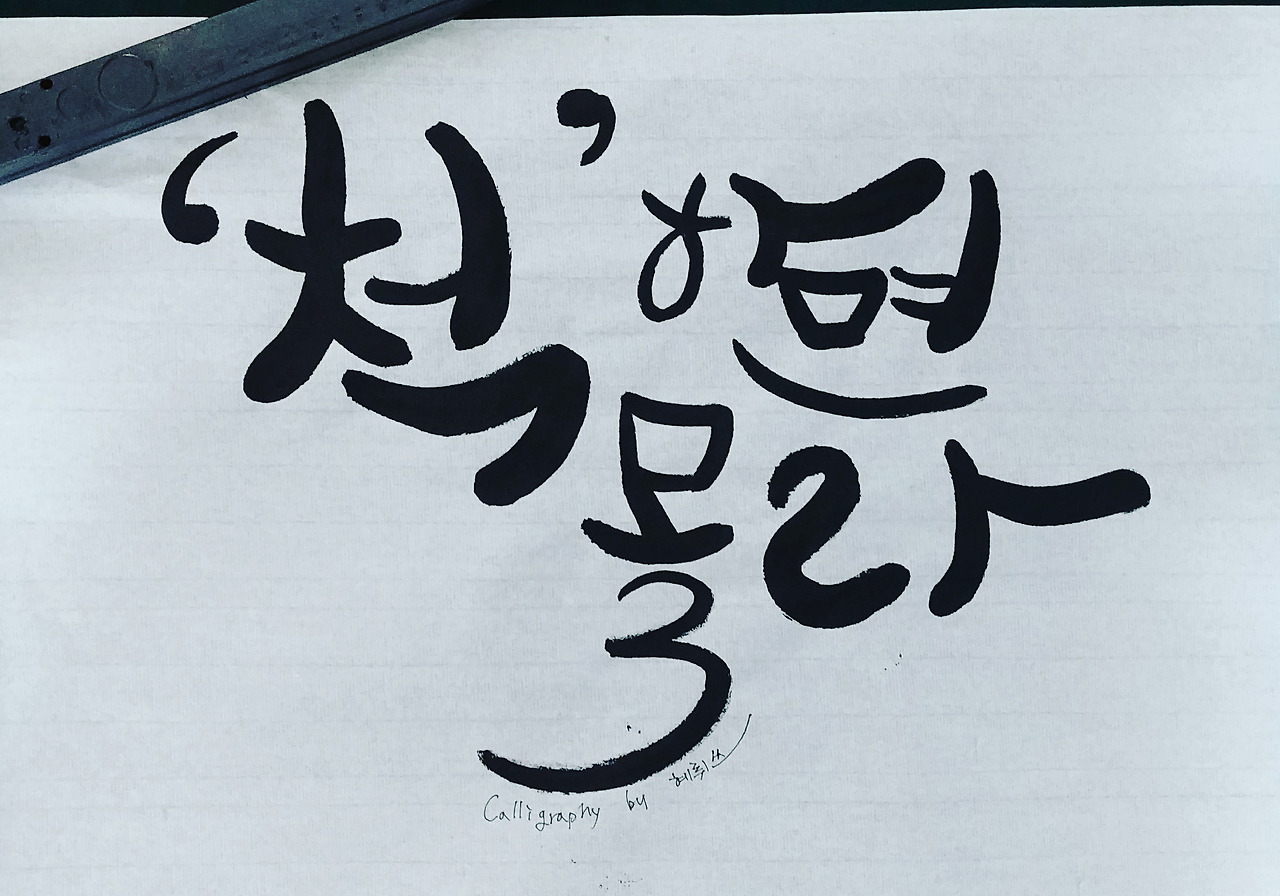 '척' 하면
몰라
Calligraphy by